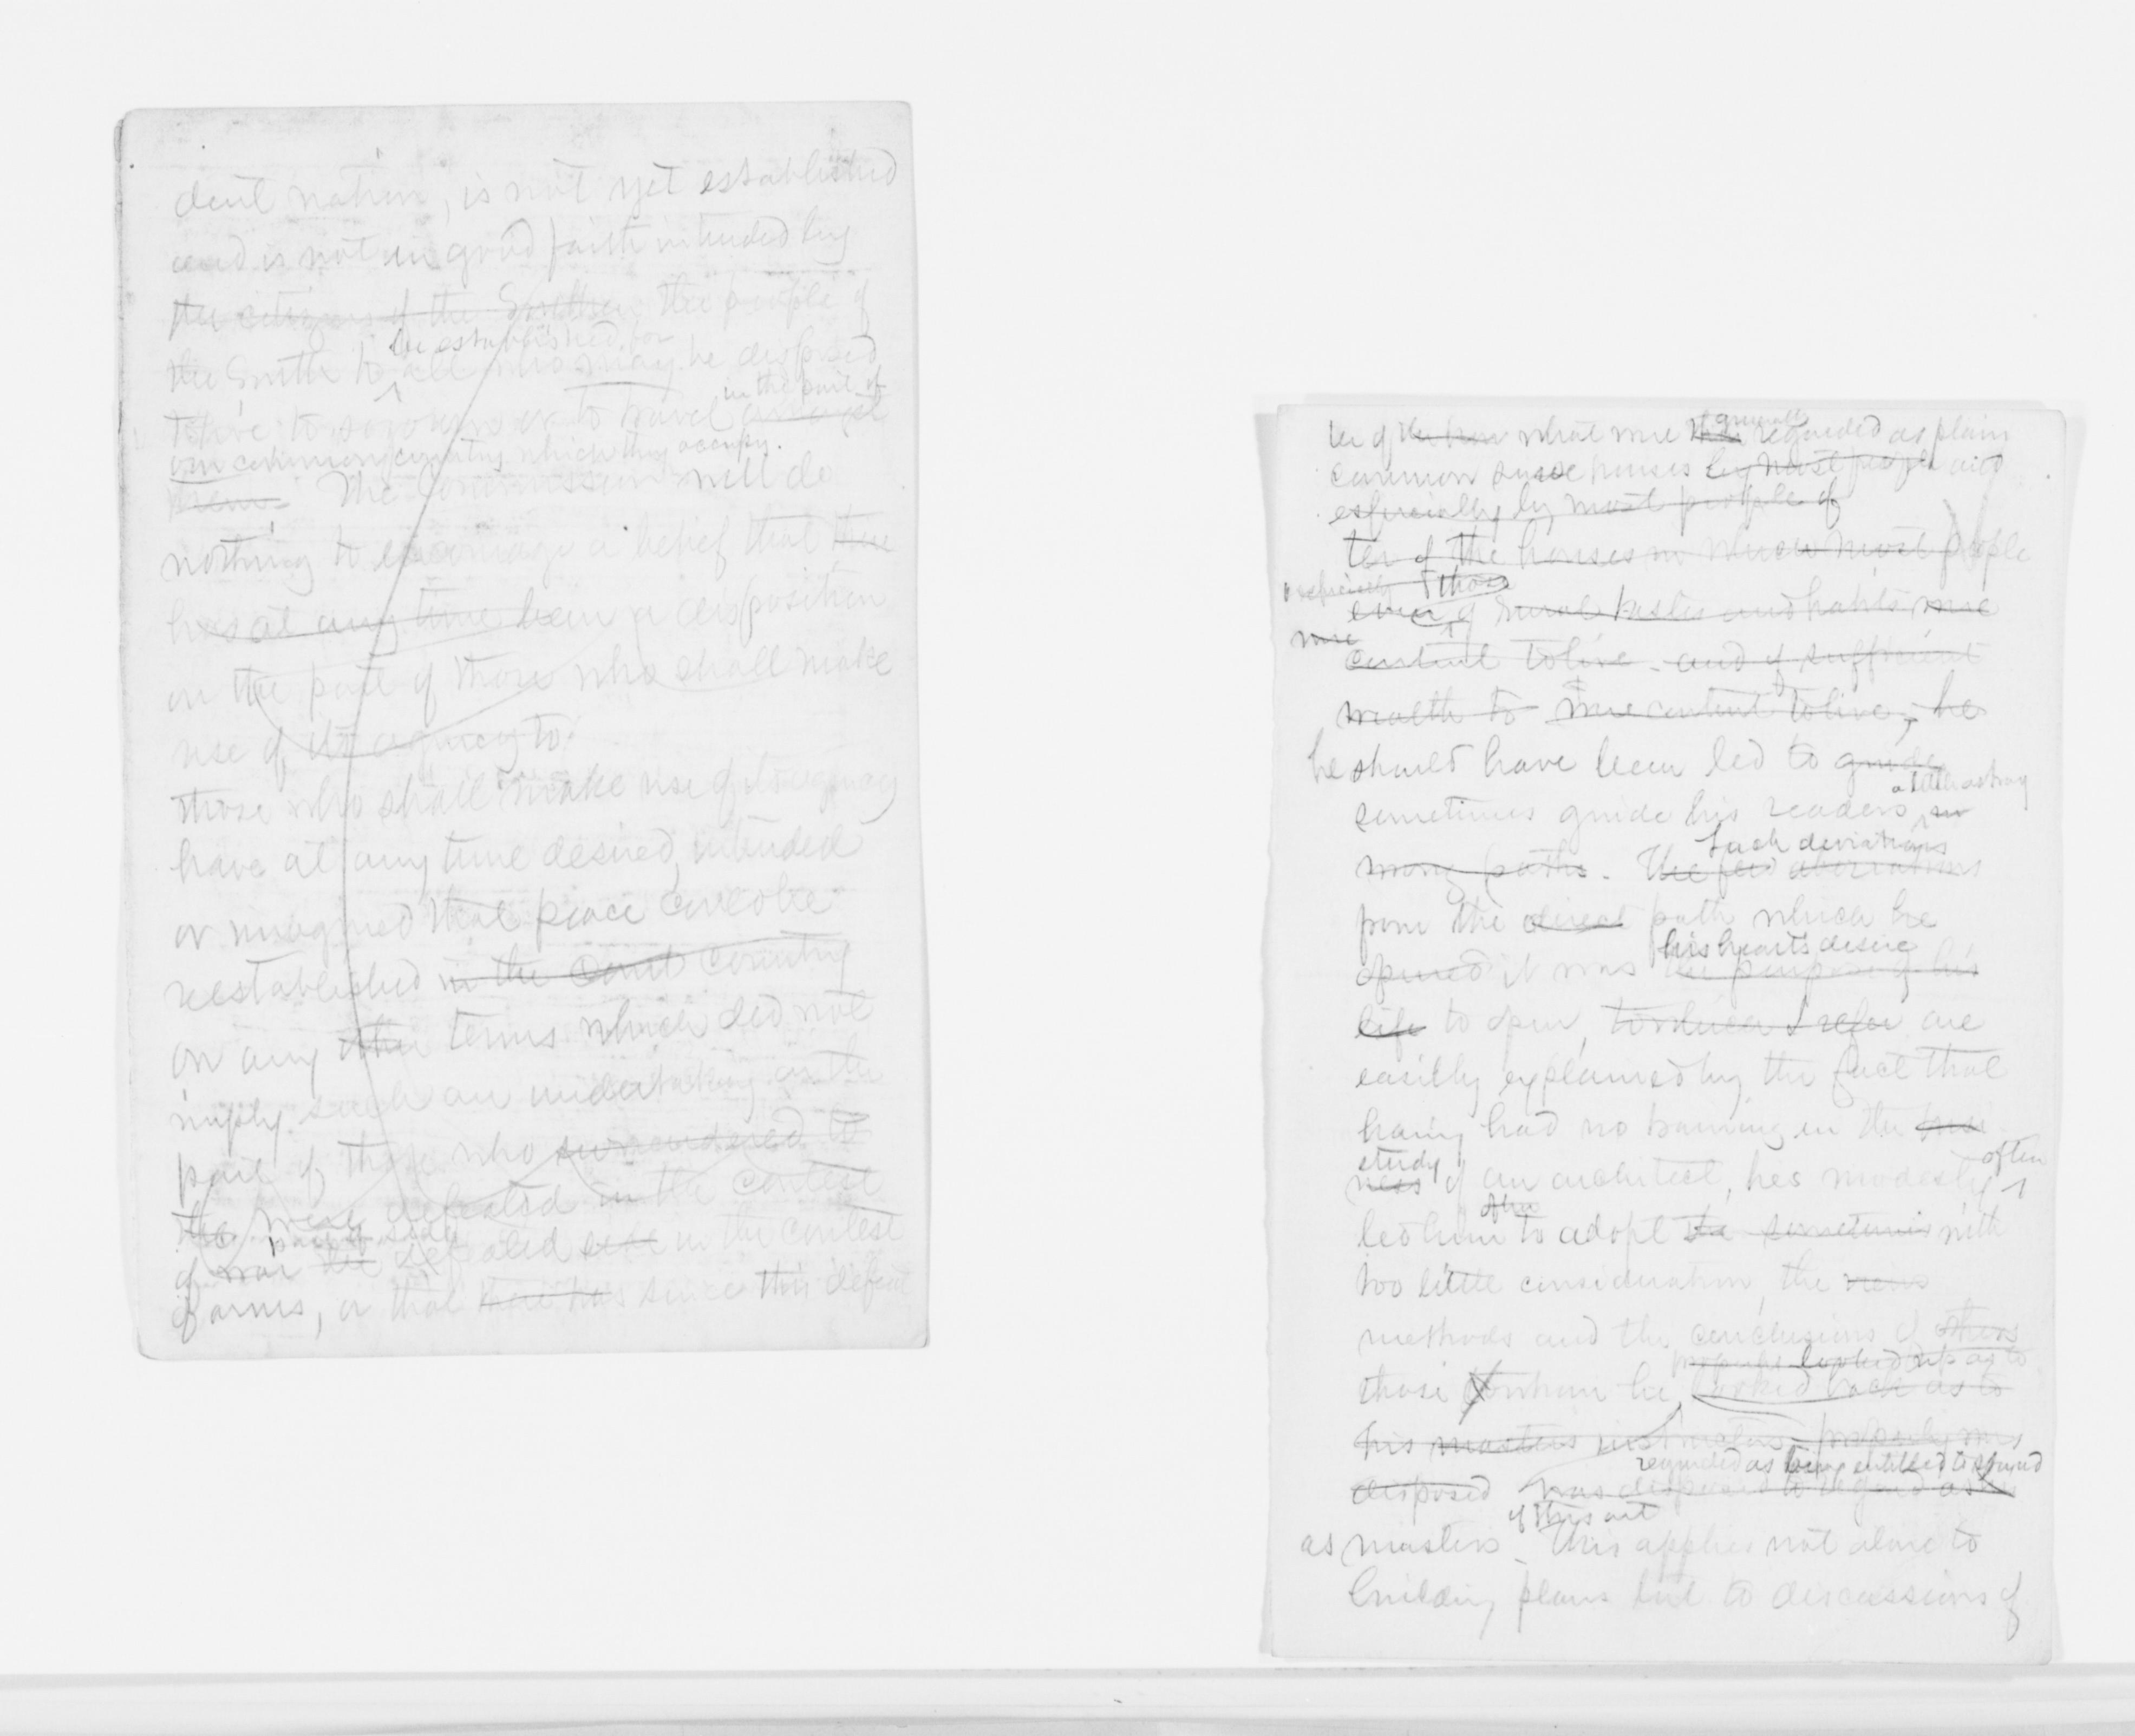 dent nation", is not yet established
and is not in good faith intended by
the citizens of the Southern the people of
be established for
the South to all who may be disposed
in the part of
to live, to sojourn or to travel
our common country which they occupy.
them. The Commission will do
nothing to encourage a belief that there
has at any time been a disposition
on the part of those who shall make
use of its agency to
those who shall make use of its agency
have at any time desired, intended
or imagined that peace could be
reestablished in the country
on any other terms which did not
imply such an undertaking on the
part of those who surrendered to
the were defeated in the contest
of war the defeated in the contest
of arms, or that there has since this defeat
generally
ter of what were regarded as plain
common sense houses by most people and
especially by most people of
ter of the houses in which most people
especially those
even of rural tastes and habits were
were
content to live - and of sufficient
wealth to were content to live, he
he should have been led to guide
a little astray
sometimes guide his readers in
wrong paths. The few aberrations
Such deviations
from the direct path which he
his hearts desire
opened it was the purpose of his
life to open, to which I refer are
easily explained by the fact that
having had no training in the busi
study often
ness of an architect, his modesty
often
led him to adopt the sometimes with
too little consideration, the views
methods and the conclusions of others
looked up as to
those to whom he looked back as to
his masters instructors properly was
regarded as being entitled to
disposed was disposed to regard as
of this art
as masters. This applies not alone to
building plans but to discussions of